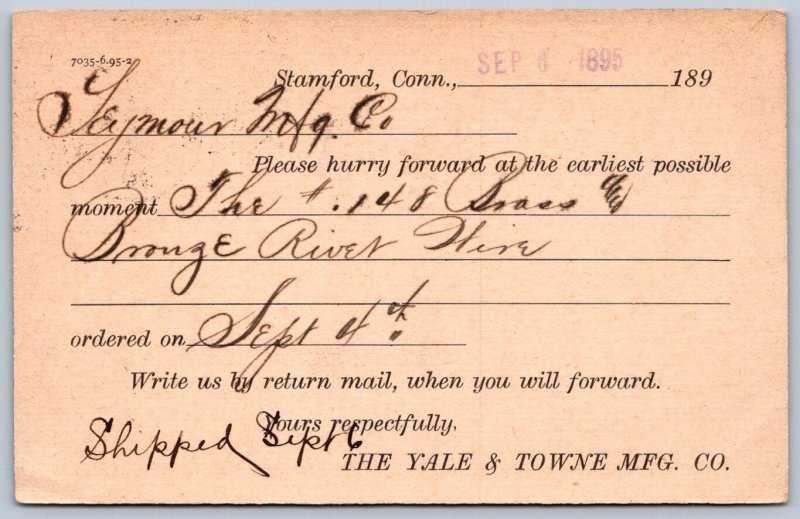 7035-6.95-2
Stamford, Conn., SEP 6 1895 189
Seymour Mfg. Co
Please hurry forward at the earliest possible
moment The #.148 Brass &
Bronze Rivet Wire
ordered on Sept 4th
Write us by return mail, when you will forward.
Yours respectfully,
Shipped Sept 6
THE YALE & TOWNE MFG. CO.